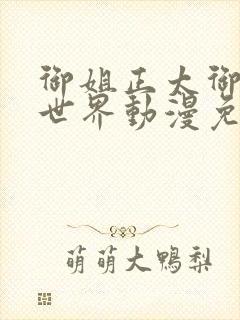 御姐正太御
世界動漫免
萌萌大鴨梨